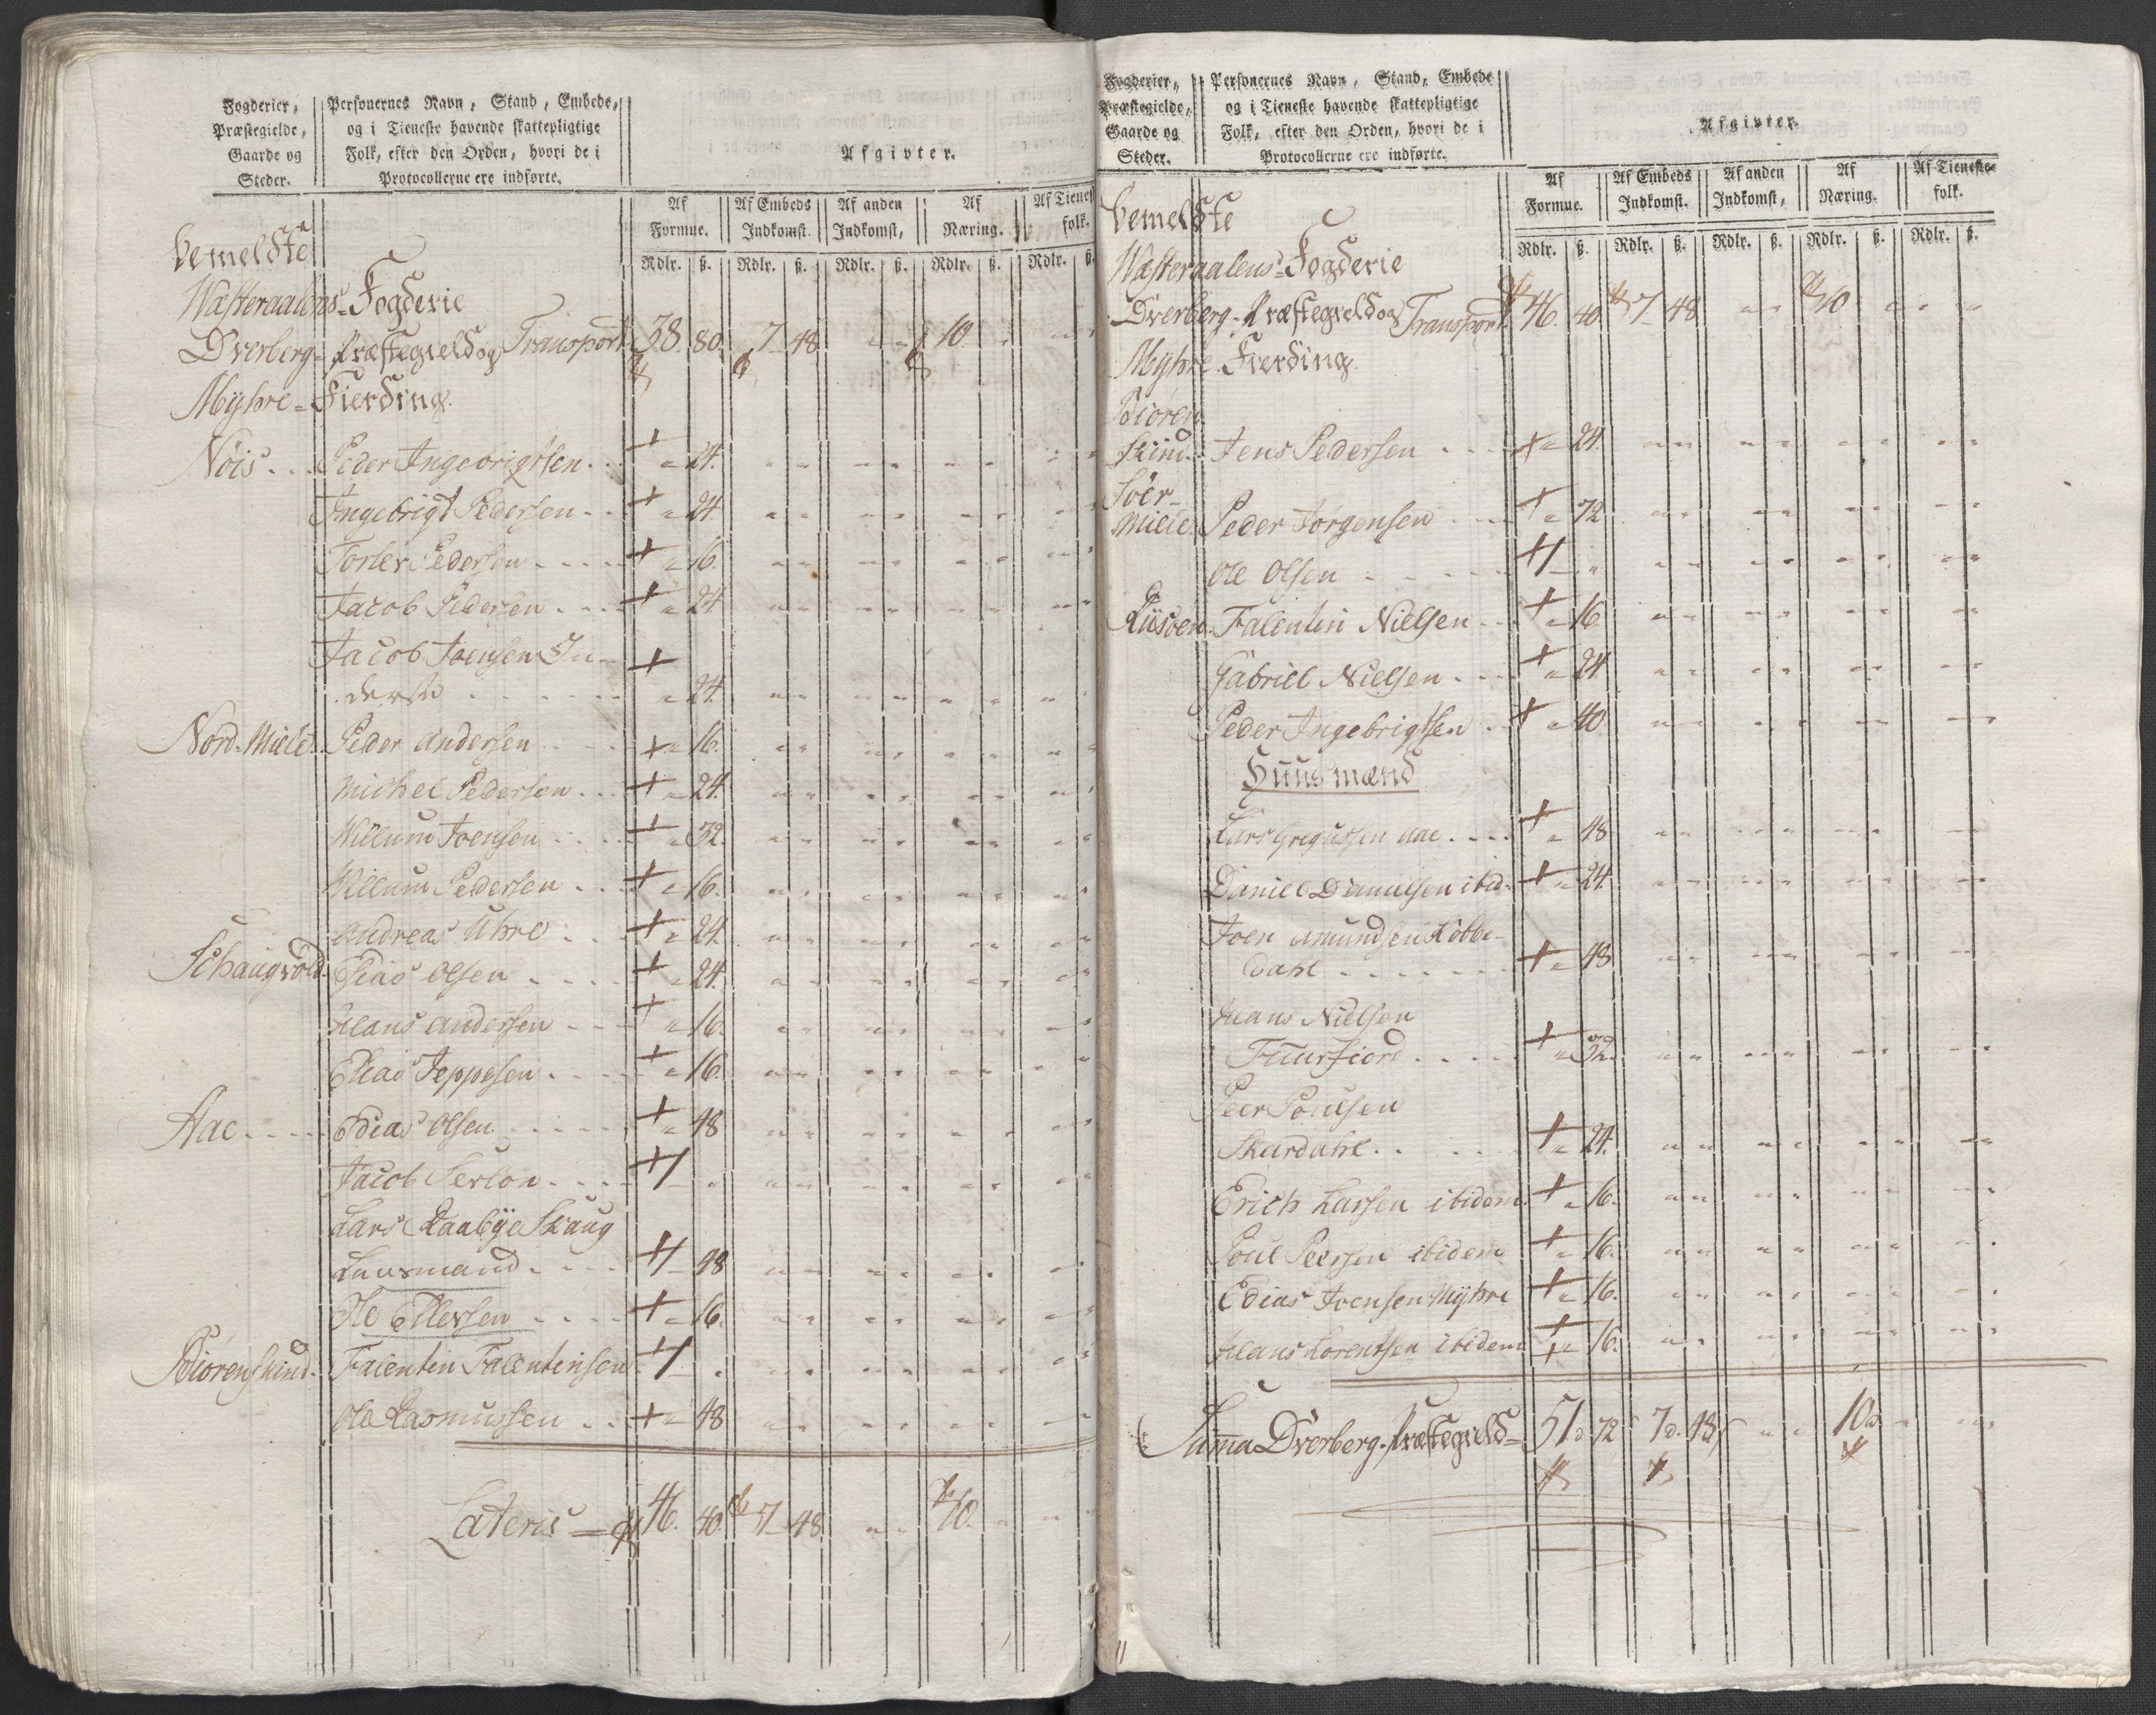 Fogderier, Præstegielde, Gaarde og Steder. | Personernes Navn, Stand, Embede, og i Tieneste havende skattepligtige Folk, efter den Orden, hvori de i Protocollerne ere indførte. | Afgivter.
Af Formue. | Af Embeds Indkomst | Af anden Indkomst, | Af Næring. | Af Tienes folk.
Rdlr. | ß. | Rdlr. | ß. | Rdlr. | ß. | Rdlr. | ß. | Rdlr. | ß.
bemeldte
Wæsteraalens-Fogderie
Dverberg-Præstegield og Transport 38. 80. 7 48 " " 10 " "
Myhre-Fierding.
Nöis Peder Ingebrigtsen + " 24.
Ingebrigt Pedersen + " 24.
Pedersen + " 16.
Jacob Pedersen + " 24
Jacob Joensen In-
derste + " 24.
Nord-Miele Peder Andersen + " 16.
Michel Pedersen + " 24.
Willum Joensen + " 32.
Willum Pedersen + " 16.
Andreas Uhre + " 24.
Schaugvold Elias Olsen + " 24.
Hans Andersen + " 16.
Elias Jeppesen + " 16.
Aae Edias Olsen + " 48
Jacob + 1 "
Lars Raabye Skaug
Lensmand + 1 48
Ole Ellefsen + " 16.
Biörenskind. Falentin Falentinsen + 1 "
Ole Rasmussen + " 48
Lateris 46. 40. 7 48 " " 10. " "
Fogderier, Præstegielde, Gaarde og Steder. | Personernes Navn, Stand, Embede og i Tieneste havende skattepligtige Folk, efter den Orden, hvori de i Protocollerne ere indførte. | Afgivter.
Af Formue. | Af Embeds Indkomst. | Af anden Indkomst, | Af Næring. | Af Tieneste-folk.
Rdlr. | ß. | Rdlr. | ß. | Rdlr. | ß. | Rdlr. | ß. | Rdlr. | ß.
bemeldte
Wæsteraalens-Fogderie
Dverberg-Præstegield og Transport 46. 40. 7 48 " " 10 " "
Myhre Fierding.
Biören
skind Jens Pedersen + " 24.
Söer-
Miele Peder Jørgensen + " 72
Ole Olsen + 1 "
Falentin Nielsen + " 16
Gabriel Nielsen + " 24.
Peder Ingebrigtsen + " 40
Huusmænd
Lars Gregussen Aae + " 48
Daniel Danielsen ibid. + " 24.
Joen Amundsen Kobbe-
dahl + " 48
Hans Nielsen
Fuursfiord + " 32.
Peer Poulsen
Skardahl + " 24.
Erich Larsen ibidem + " 16.
Poul Peersen ibidem + " 16.
Edias Joensen Myhre + " 16.
Hans Lorentsen ibidem + " 16.
Summa Dverberg-Præstegield 51 72 7 48 " " 10 " "